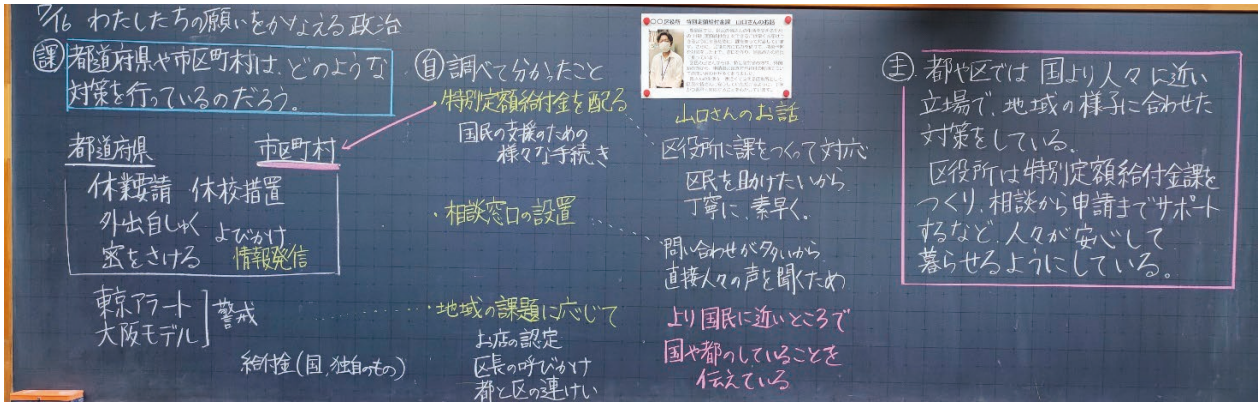 7/16 わたしたちの願いをかなえる政治
課 都道府県や市区町村は、どのような
対策を行っているのだろう。
都道府県 市区町村
休業要請 休校措置
外出自しゅく よびかけ
密をさける 情報発信
東京アラート
大阪モデル
警戒
給付金(国、独自のもの)
自 調べて分かったこと
・特別定額給付金を配る
国民の支援のための
様々な手続き
・相談窓口の設置
・地域の課題に応じて
お店の認定
区長の呼びかけ
都と区の連けい
〇〇区役所 特別定額給付金課 山口さんのお話
山口さんのお話
区役所に課をつくって対応
区民を助けたいから
丁寧に、素早く。
問い合わせが多いから
直接人々の声を聞くため
より国民に近いところで
国や都のしていることを
伝えている
主 都や区では国より人々に近い
立場で、地域の様子に合わせた
対策をしている。
区役所は特別定額給付金課を
つくり、相談から申請までサポート
するなど、人々が安心して
暮らせるようにしている。